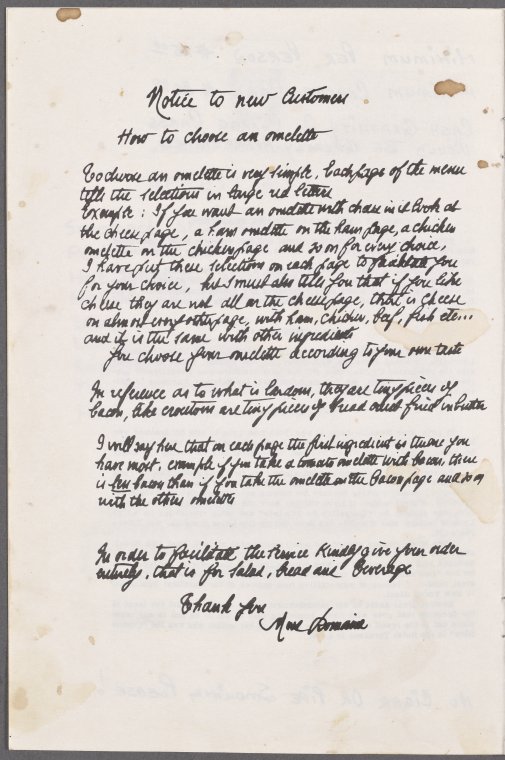 Notice to new Customers
How to choose an omelette
To choose an omelette is very simple, Each page of the menu
tells the selections in large red letters
Example: If you want an omelette with cheese in it look at
the cheese page, a ham omelette on the ham page, a chicken
omelette on the chicken page and so on for every choice,
I have put these selections on each page to facilitate you
for your choice, but I must also tell you that if you like
cheese they are not all on the cheese page, there is cheese
on almost every other page, with ham, chicken, beef, fish etc...
and it is the same with other ingredients
You choose your omelette according to your own taste
In reference as to what is lardons, they are tiny pieces of
bacon, like croutons are tiny pieces of bread and fried in butter
I will say here that on each page the first ingredient is the one you
have most, example if you take a tomato omelette with bacon, there
is less bacon than if you take the omelette on the Bacon page and so on
with the others omelettes
In order to facilitate the Service Kindly give your order
entirely, that is for Salad, bread and Beverage
Thank you
Mme Romaine